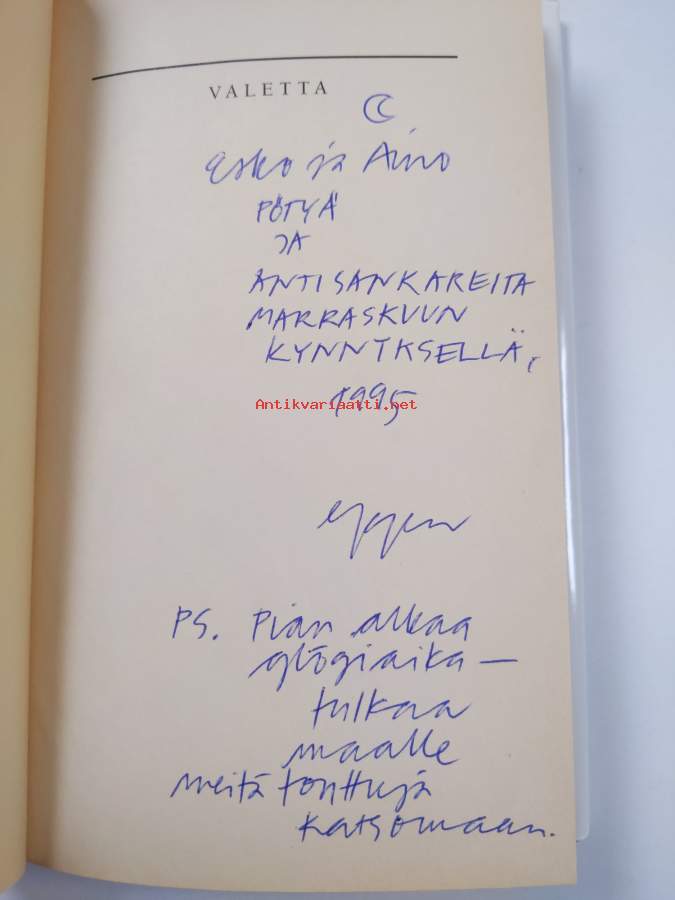 VALETTA
Esko ja Aino
PÖTYÄ
JA
ANTISANKAREITA
MARRASKUUN
KYNNYKSELLÄ,
1995
Antikvariaatti.net
PS. Pian alkaa
glögiaika —
tulkaa
maalle
meitä tonttuja
katsomaan.